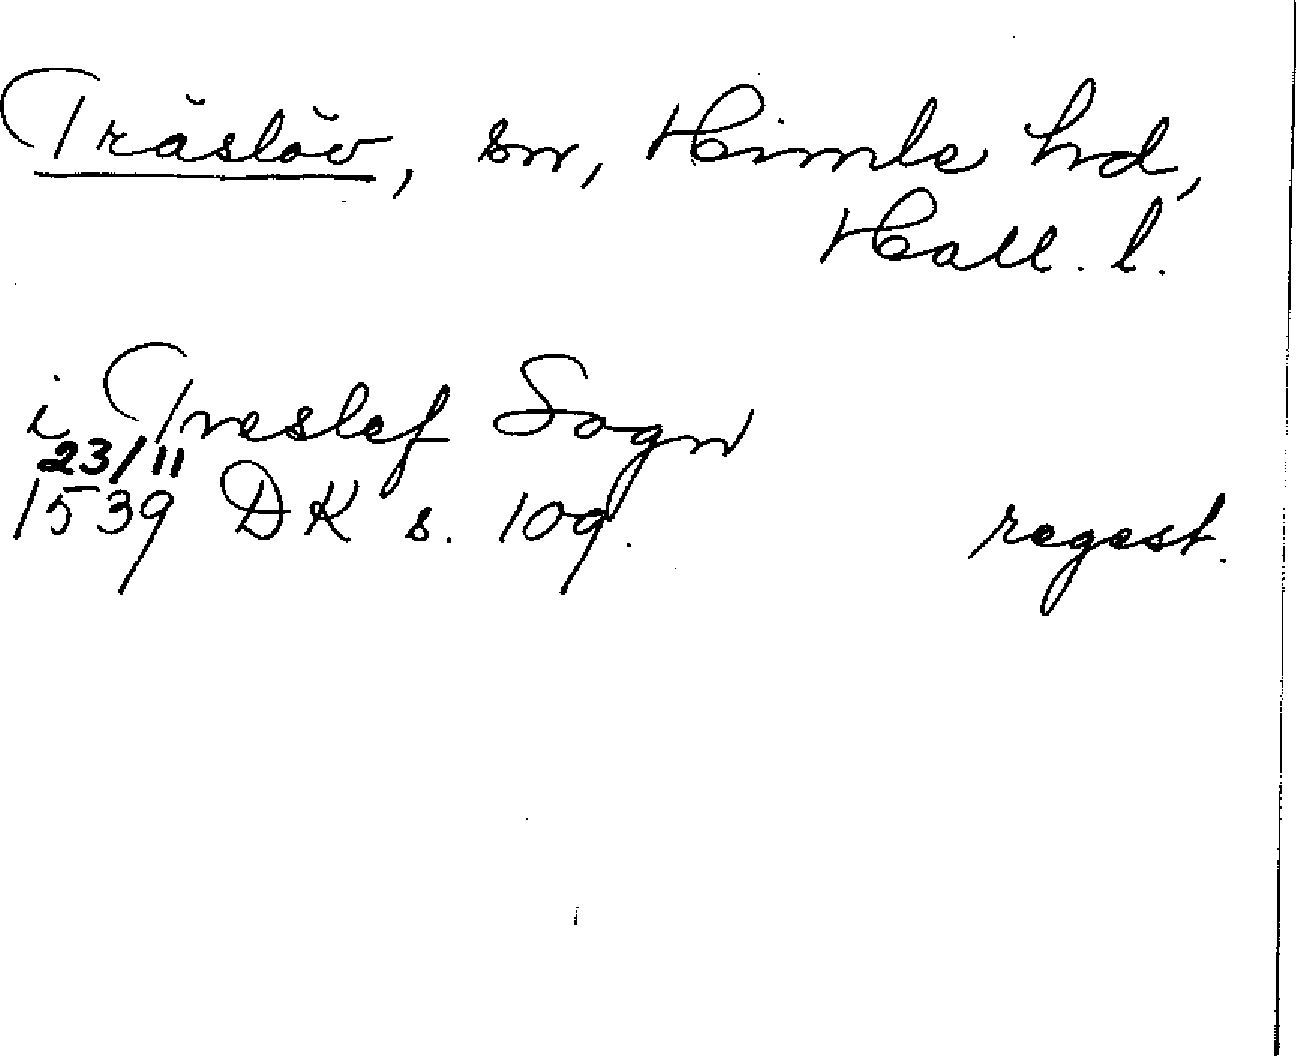 Träslöv, sn, Himle hd,
Hall. l.
i Treslef Sogn
23/11
1539 DK s. 109. regest.